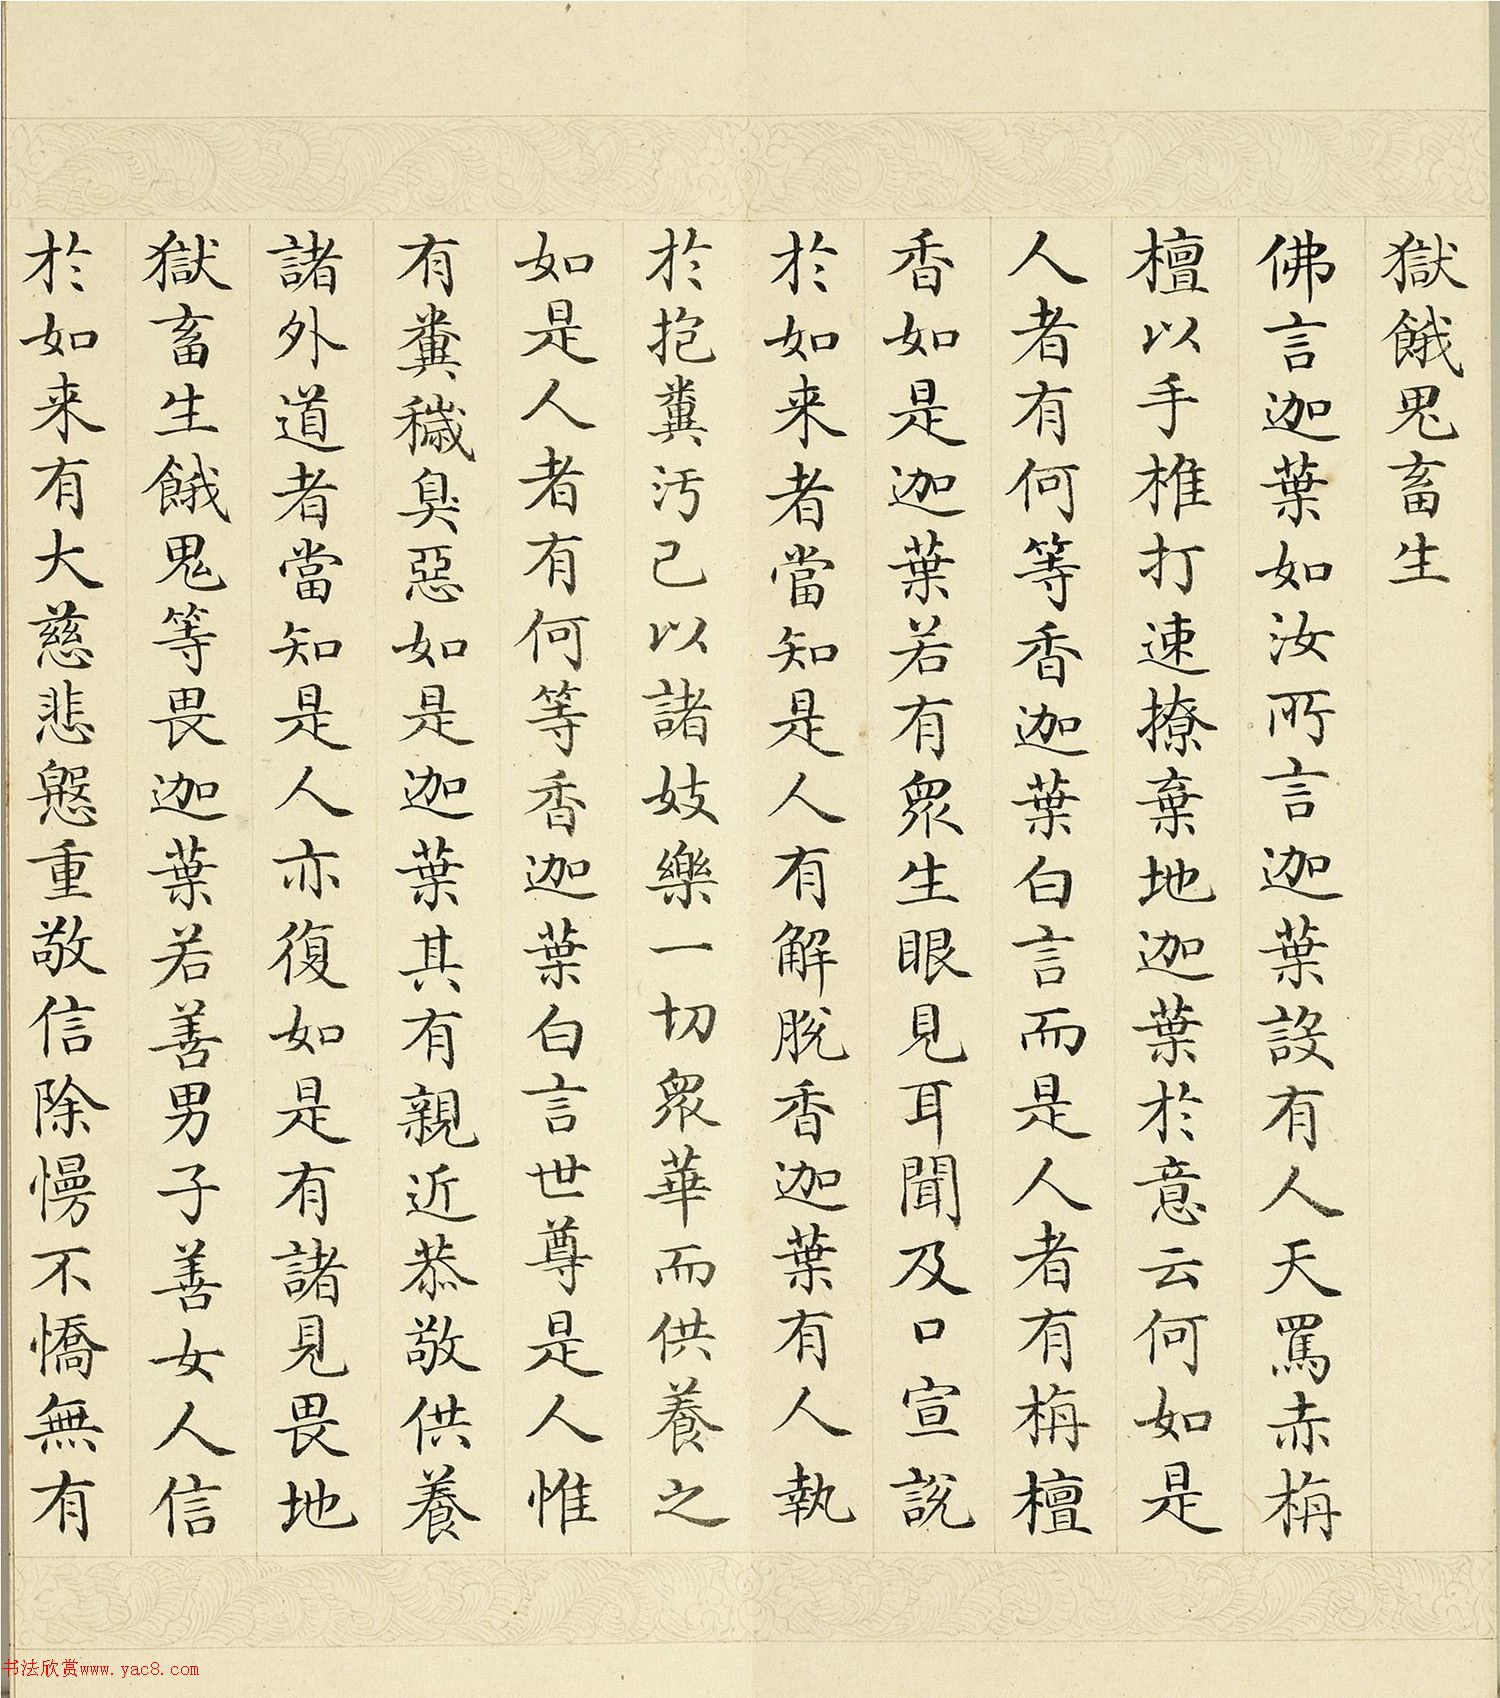 獄餓鬼畜生
佛言迦葉如汝所言迦葉設有人天罵赤栴
檀以手椎打速撩棄地迦葉於意云何如是
人者有何等香迦葉白言而是人者有栴檀
香如是迦葉若有眾生眼見耳聞及口宣說
於如来者當知是人有解脫香迦葉有人執
於抱糞汚己以諸妓樂一切眾華而供養之
如是人者有何等香迦葉白言世尊是人惟
有糞穢臭惡如是迦葉其有親近恭敬供養
諸外道者當知是人亦復如是有諸見畏地
獄畜生餓鬼等畏迦葉若善男子善女人信
於如来有大慈悲慇重敬信除慢不憍無有
书法欣赏www.yac8.com